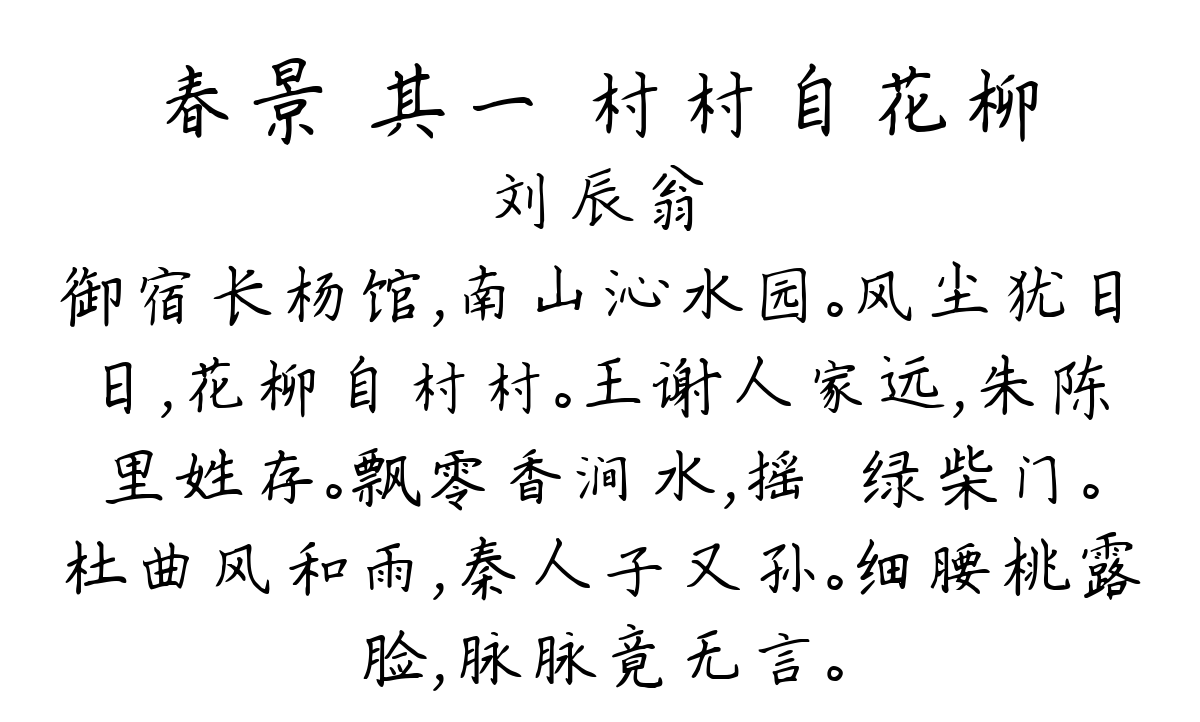 春景 其一 村村自花柳
刘辰翁
御宿长杨馆,南山沁水园。风尘犹日
日,花柳自村村。王谢人家远,朱陈
里姓存。飘零香涧水,摇 绿柴门。
杜曲风和雨,秦人子又孙。细腰桃露
脸,脉脉竟无言。